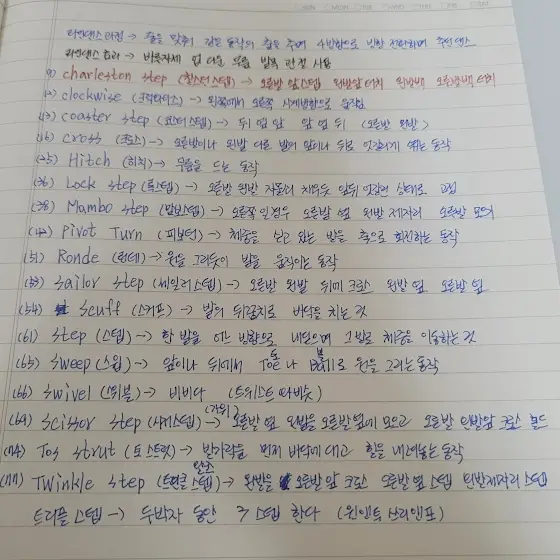 라인댄스라전 → 줄을 맞춰 같은 동작의 춤을 추며 4방향으로 방향 전환하며 추는 댄스
라인댄스 효과 → 바른자세 업 다운 무릎 발목 관절 사용
9) charleston step (찰스턴스텝) → 오른발 앞 스텝 왼발 앞 터치 왼발백 오른발백 터치
(12) clockwise (크락와이즈) → 왼쪽에서 오른쪽 시계방향으로 움직임
(13) coaster step (코스터스텝) → 뒤 옆 앞 앞 옆 뒤 (오른발 왼발)
(16) cross (크로스) → 오른발이나 왼발 다른 발의 앞이나 뒤로 엇갈리게 꺾는 동작
(25) Hitch (히치) → 무릎을 드는 동작
(36) Lock step (록스텝) → 오른발 왼발 자물쇠 채우듯 앞뒤 엇갈린 상태로 고정
(38) Mambo step (맘보스텝) → 오른쪽인경우 오른발 옆 왼발 제자리 오른발 모으기
Pivot Turn (피보턴) → 체중을 싣고 있는 발을 축으로 회전하는 동작
(51) Ronde (런데) → 원을 그리듯이 발을 움직이는 동작
(53) sailor step (세일러스텝) → 오른발 왼발 뒤에 크로스 왼발 옆 오른발 옆
(54) scuff (스커프) → 발의 뒤꿈치로 바닥을 치는 것
(61) step (스텝) → 한 발을 어느 방향으로 내딛으며 그 발로 체중을 이동하는 것
(65) sweep (스윕) → 앞이나 뒤에서 Toe 토 나 Ball 볼 로 원을 그리는 동작
(66) swivel (스위블) → 비비다 (트위스트 따비듯)
(69) scissor step (시저스텝) → (가위) 오른발 옆 왼발을 오른발 옆에 모으고 오른발 왼발앞 크로스 홀드
(74) Toe strut (토 스트럿) → 발가락을 먼저 바닥에 대고 힐을 내려놓는 동작
(77) Twinkle step (트윈클 스텝) → 왈츠 왼발을 오른발 앞 크로스 오른발 옆 스텝 왼발제자리 스텝
트리플 스텝 → 두박자 동안 3 스텝 한다 (원앤투 쓰리앤포)